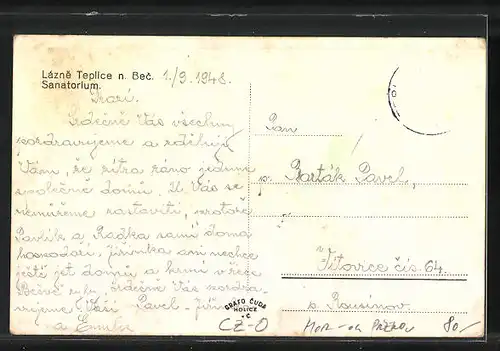 Lázně Teplice n. Beč. 1./9. 1948.
Sanatorium.
Drazí.
Srdečně Vás všechny
pozdravujeme a sděluji
Vám, že zítra ráno jedeme
společně domů. U Vás se
nemůžeme zastaviti, protože
Pavlík a Radka sami doma
hospodaří, Jiřinka ani nechce
ještě jet domů a
Srdečně Vás pozdra-
vujeme Vaši Pavel - Jiřin
a Emilie
Pan
p. Barták Pavel,
v Vítovice čís 64.
p. Rousínov.
GRAFO ČUDA
HOLICE
CZ-O
80/-